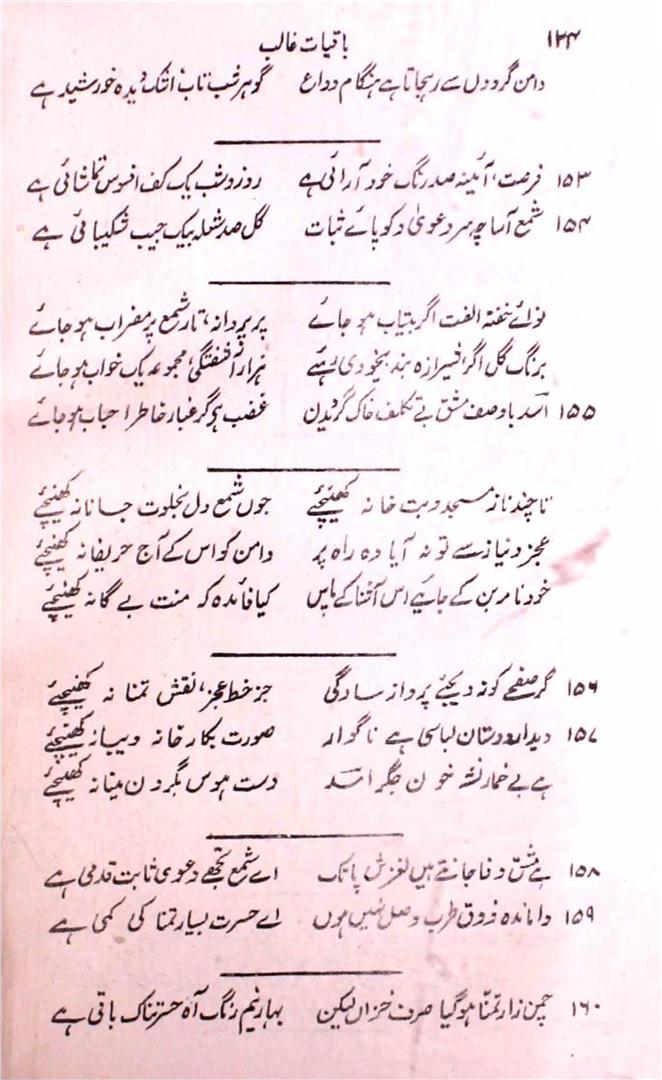 ۱۲۴ باقیات غالب
دامن گردوں سے رہجاتا ہے ہنگام وداع گوہر شب تاب اشک دیدہ خورشید ہے
۱۵۳ فرصت، آئینہ صد رنگ خود آرائی ہے روز و شب یک کف افسوس تماشائی ہے
۱۵۴ شمع آسا چہ سر دعویٰ و کو پائے ثبات گل صد شعلہ بیک جیب شکیبائی ہے
نوائے خفتہ الفت اگر بیتاب ہو جائے پر پروانہ، تار شمع پر مضراب ہو جائے
برنگ گل اگر شیرازہ بند بیخودی رہئے ہزار آشفتگی، مجموعہ یک خواب ہو جائے
۱۵۵ اسد باوصف مشق بے تکلف خاک گردیدن غضب ہو گر غبار خاطر احباب ہو جائے
تا چند ناز مسجد و بت خانہ کھینچئے جوں شمع دل بخلوت جانانہ کھینچئے
عجز و نیاز سے تو نہ آیا وہ راہ پر دامن کو اس کے آج حریفانہ کھینچئے
خود نامہ بن کے جائیے اس آشنا کے پاس کیا فائدہ کہ منت بے گانہ کھینچئے
۱۵۶ گر صفحے کو نہ دیجئے پرواز سادگی جز خط عجز، نقش تمنا نہ کھینچئے
۱۵۷ دیدار دوستان لباسی ہے ناگوار صورت بکار خانہ و دیبا نہ کھینچئے
ہے بے خمار نشہ خون جگر اسد دست ہوس بگردن مینا نہ کھینچئے
۱۵۸ بے مشق وفا جانتے ہیں لغزش پا تک اے شمع تجھے دعوی ثابت قدمی ہے
۱۵۹ واماندہ ذوق طرب وصل نہیں ہوں اے حسرت بسیار تمنا کی کمی ہے
۱۶۰ چمن زار تمنا ہو گیا صرف خزاں لیکن بہار نیم رنگ آہ حسرتناک باقی ہے